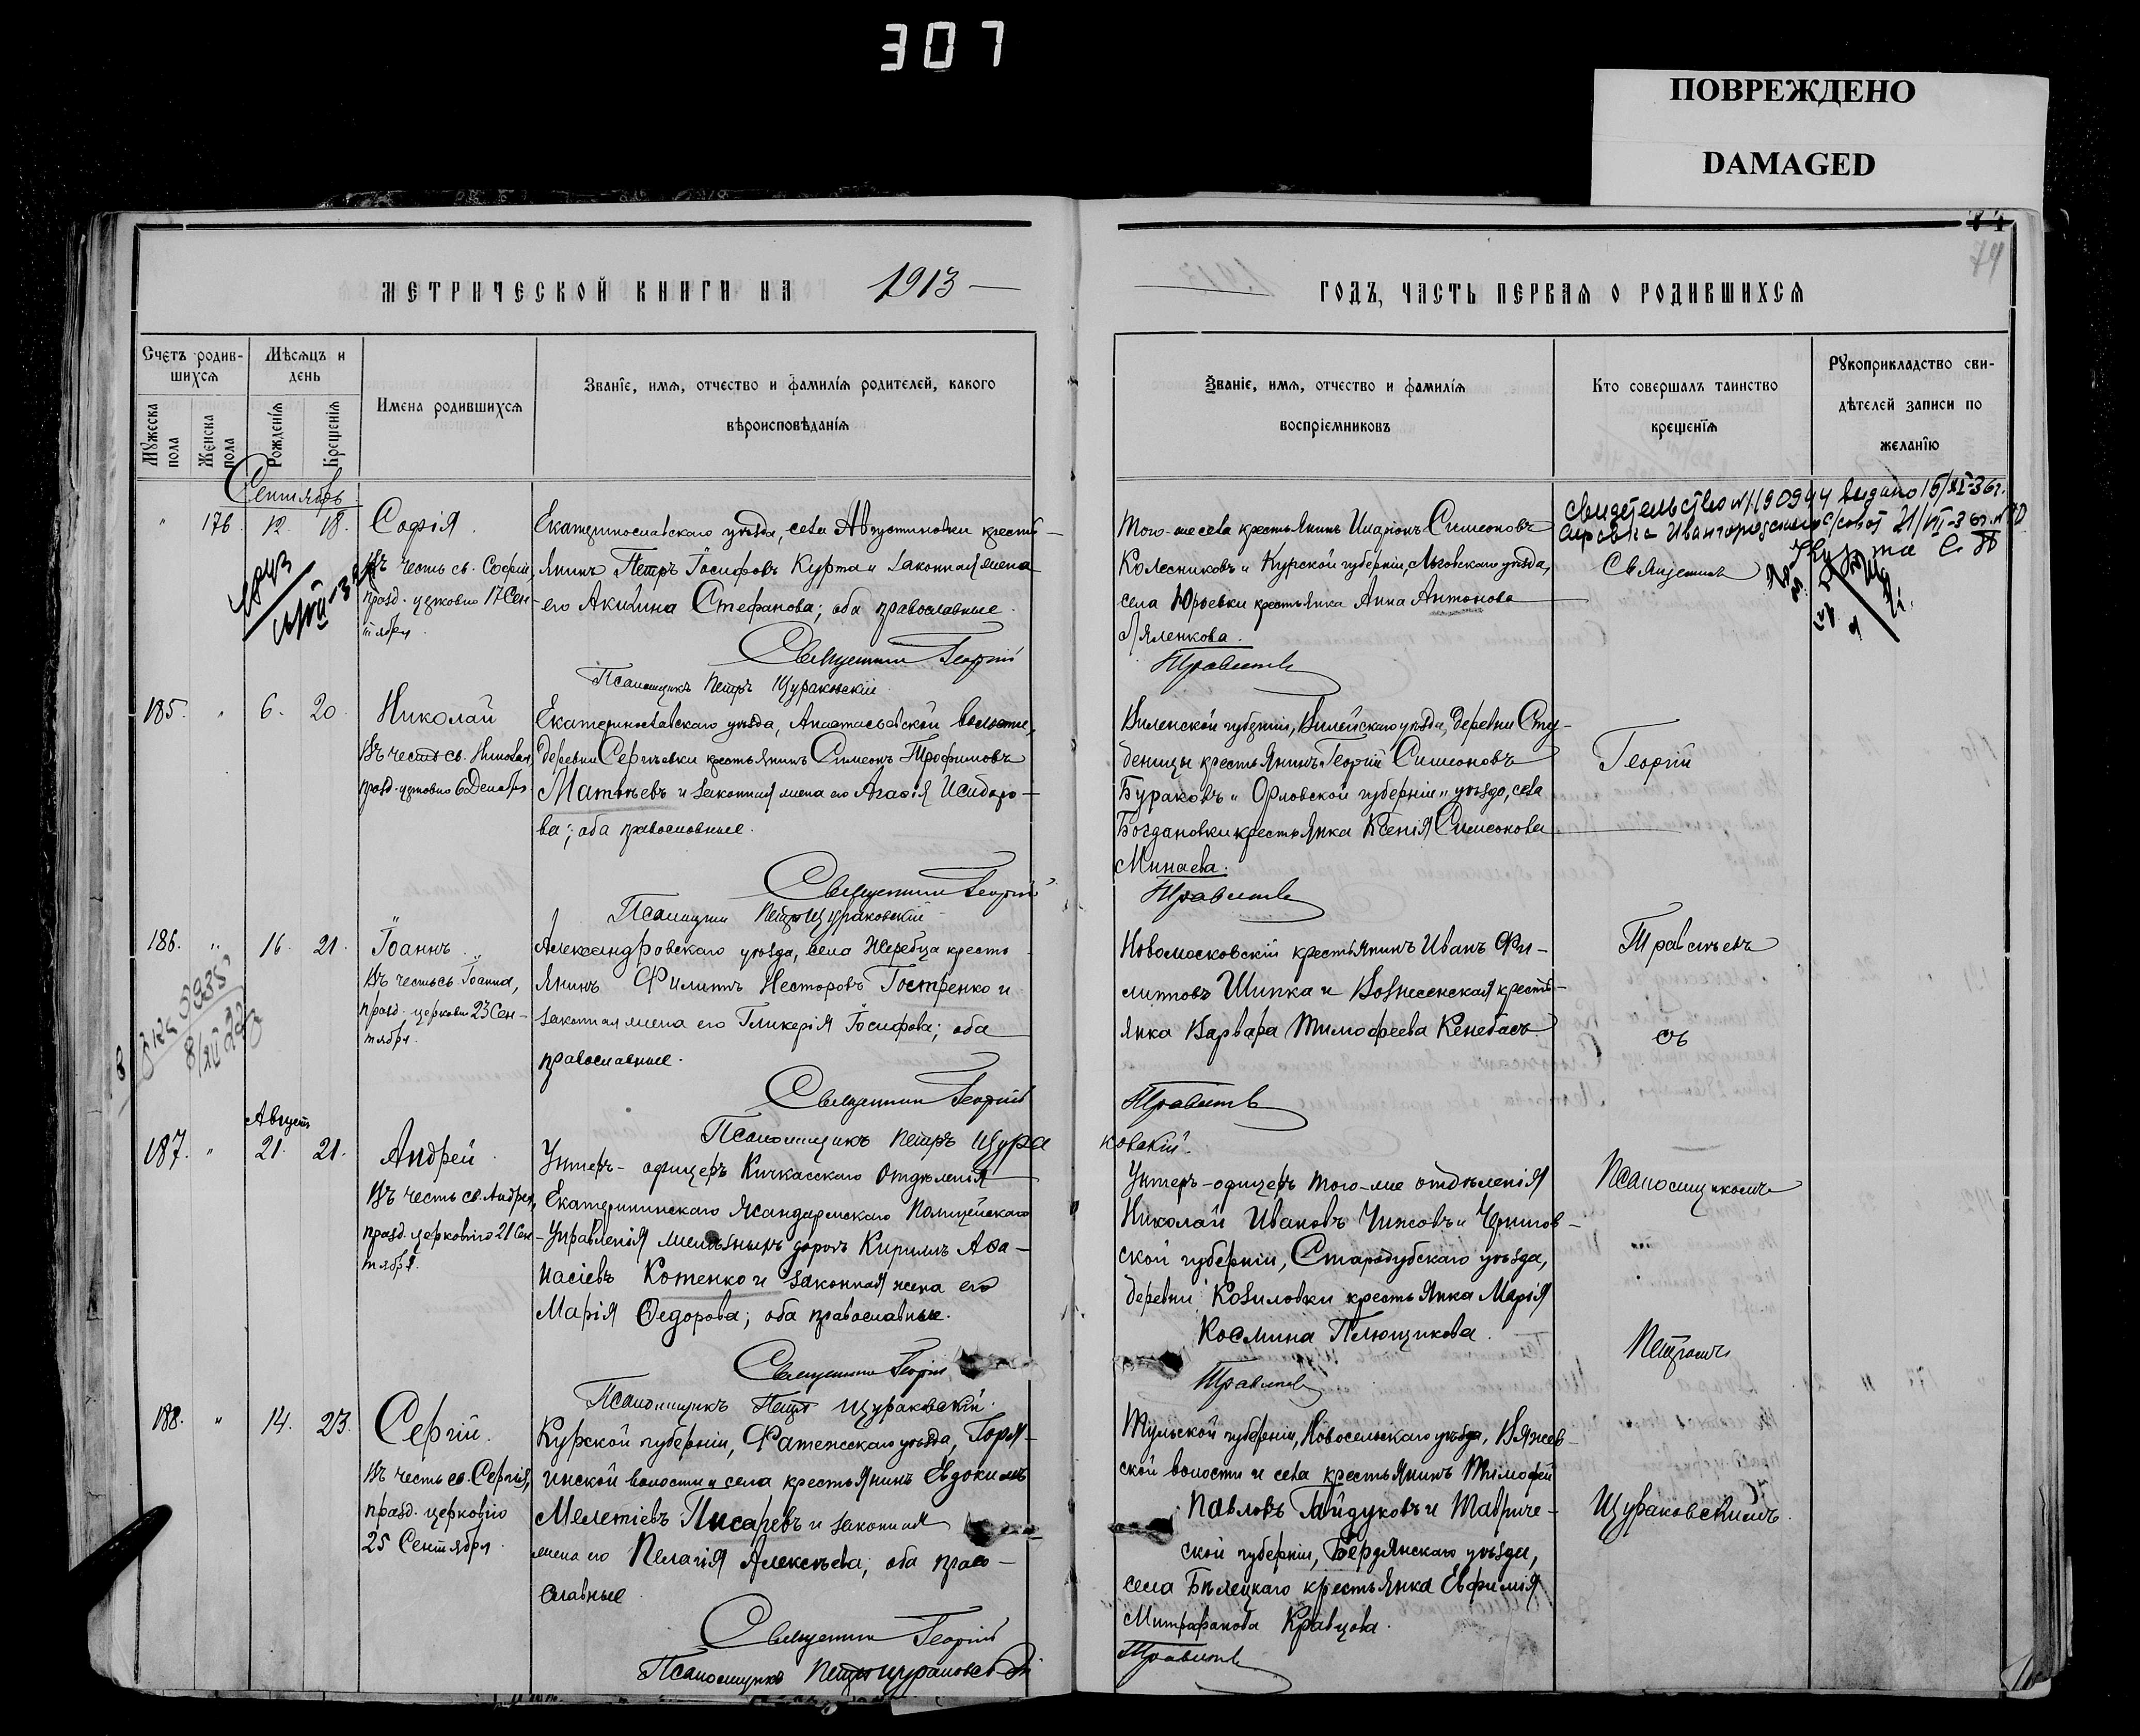 307
ПОВРЕЖДЕНО
DAMAGED
74
МЕТРИЧЕСКОЙ КНИГИ НА 1913
Счетъ родив-
шихся
Мѣсяцъ и
день
Имена родившихся
Званіе, имя, отчество и фамилія родителей, какого
вѣроисповѣданія
Мужеска
пола
Женска
пола
Рожденія
Крещенія
Сентябрь
" 176. 12. 18. Софія.
Въ честь св. Софіи,
празд. церковію 17 Сен-
тября.
Екатеринославскаго уѣзда, села Августиновки кресть-
янинъ Петръ Іосифовъ Курта и законная жена
его Акилина Стефанова; оба православные.
Священникъ Георгій
Псаломщикъ Петръ Щураковскій.
185. " 6. 20. Николай
Въ честь св. Николая,
празд. церковію 6 Декабря
Екатеринославскаго уѣзда, Анастасьевской волости,
деревни Сергѣевки крестьянинъ Симеонъ Трофимовъ
Матвѣевъ и законная жена его Агафія Исидоро-
ва; оба православные.
Священникъ Георгій
Псаломщикъ Петръ Щураковскій
186. " 16. 21. Іоаннъ.
Въ честь св. Іоанна,
празд. церковію 23 Сен-
тября.
Александровскаго уѣзда, села Жеребца кресть-
янинъ Филиппъ Несторовъ Гостренко и
законная жена его Гликерія Іосифова; оба
православные.
Священникъ Георгій
Псаломщикъ Петръ Щура
Августъ
187. " 21. 21. Андрей.
Въ честь св. Андрея,
празд. церковію 21 Сен-
тября.
Унтеръ-офицеръ Кичкасскаго Отдѣленія
Екатерининскаго Жандармскаго Полицейскаго
Управленія желѣзныхъ дорогъ Кириллъ Афа-
насіевъ Котенко и законная жена его
Марія Ѳедорова; оба православные.
Священникъ Георгій
Псаломщикъ Петръ Щураковскій.
188. " 14. 23. Сергій.
Въ честь св. Сергія,
празд. церковію
25 Сентября.
Курской губерніи, Фатежскаго уѣзда,
инской волости и села крестьянинъ Евдокимъ
Мелетіевъ Писаревъ и законная
жена его Пелагія Алексѣева; оба право-
славные.
Священникъ Георгій
Псаломщикъ Петръ Щураковскій
ГОДЪ, ЧАСТЬ ПЕРВАЯ О РОДИВШИХСЯ
Званіе, имя, отчество и фамилія
воспріемниковъ
Кто совершалъ таинство
крещенія
Рукоприкладство сви-
дѣтелей записи по
желанію
Того-же села крестьянинъ Симеоновъ
Колесниковъ и Курской губерніи, Льговскаго уѣзда,
села Юрьевки крестьянка Анна Антонова
Правитъ
Виленской губерніи, Вилейскаго уѣзда, деревни Сту-
деницы крестьянинъ Георгій Симеоновъ
Бураковъ и Орловской губерніи " уѣзда, села
Богдановки крестьянка Ксенія Симеонова
Минаева.
Новомосковскій крестьянинъ Иванъ Фи-
липповъ Шипка и Вознесенская кресть-
янка Варвара Тимофеева
ковскій.
Унтеръ-офицеръ того-же отдѣленія
Николай Ивановъ Чижовъ и Чернигов-
ской губерніи, Стародубскаго уѣзда,
деревни Козиловки крестьянка Марія
Космина
Тульской губерніи, Новосельскаго уѣзда, Вяжев-
ской волости и села крестьянинъ Тимофей
Павловъ Гайдуковъ и Тавриче-
ской губерніи, Бердянскаго уѣзда,
села Бѣлецкаго крестьянка Евфимія
Митрофанова Кравцова.
Свидетельство № 1190944 выдано
Священникъ
Георгій
съ
Псаломщикомъ
Петромъ
Щураковскимъ.